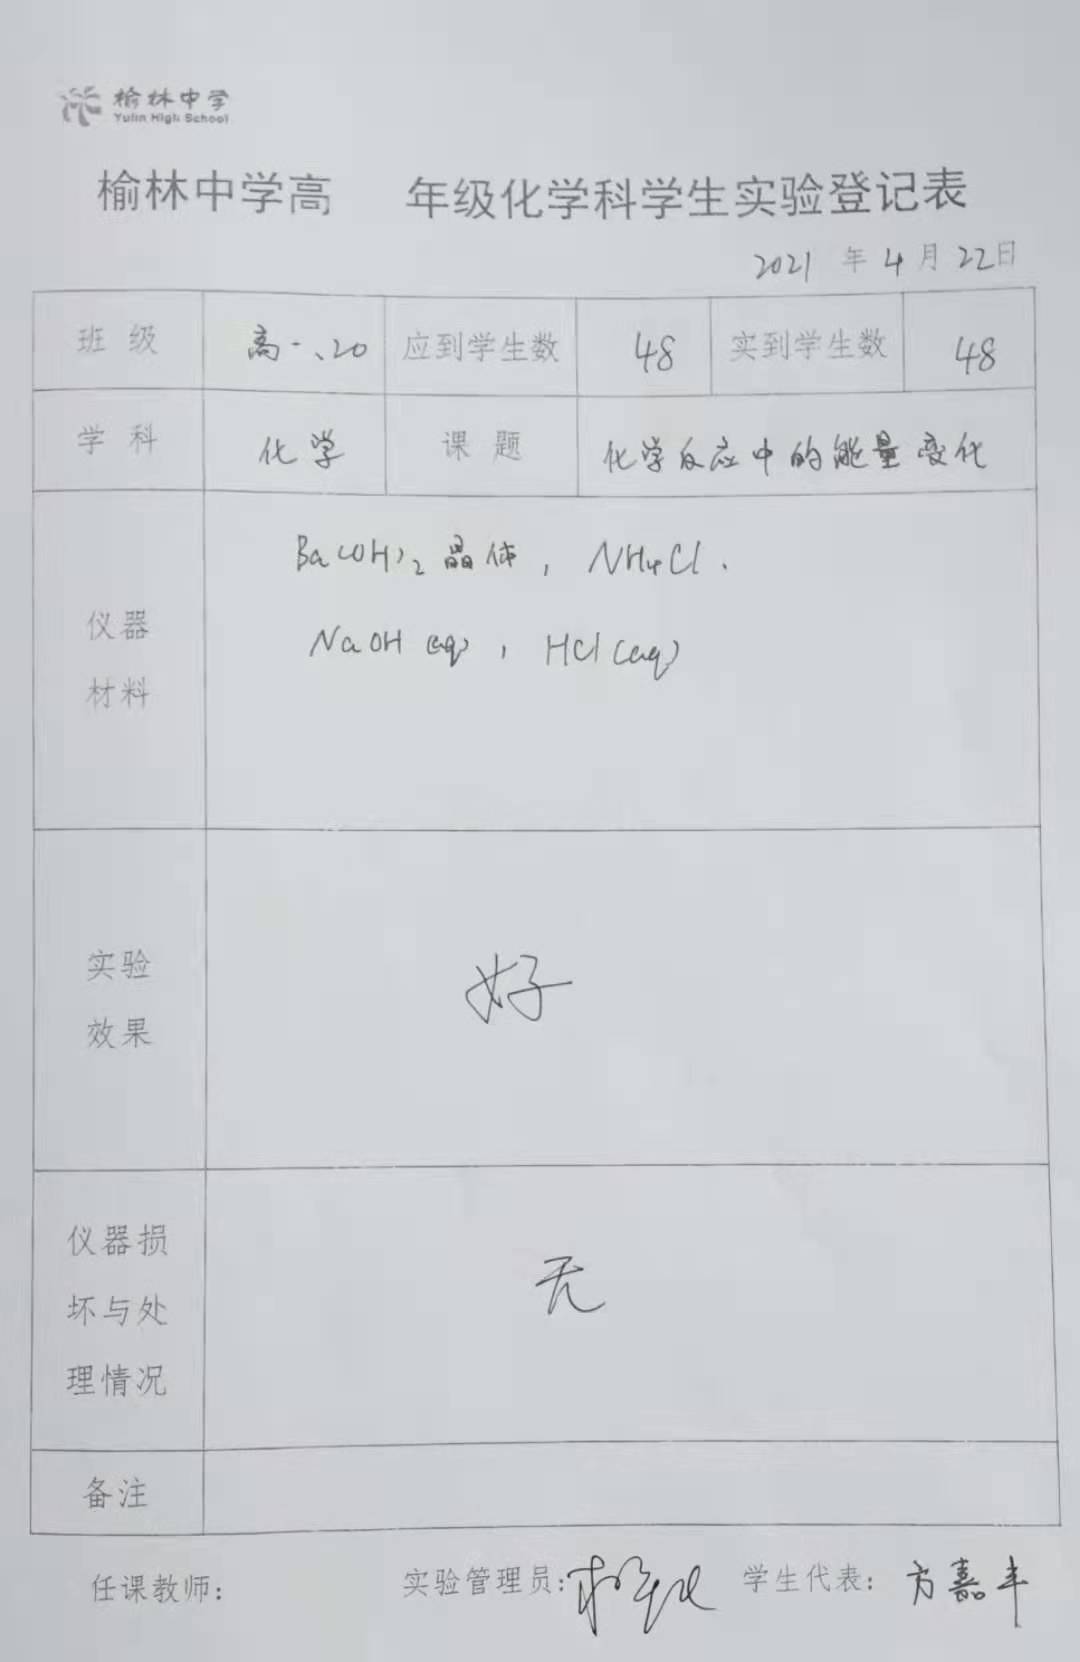 榆林中学
Yulin High School
榆林中学高 年级化学科学生实验登记表
2021 年 4 月 22日
班 级 高一、20 应到学生数 48 实到学生数 48
学 科 化学 课 题 化学反应中的能量变化
Ba(OH)₂晶体, NH₄Cl.
NaOH (aq), HCl(aq)
仪器
材料
实验
效果
好
仪器损
坏与处
理情况
无
备注
任课教师: 实验管理员: 学生代表: 方嘉丰